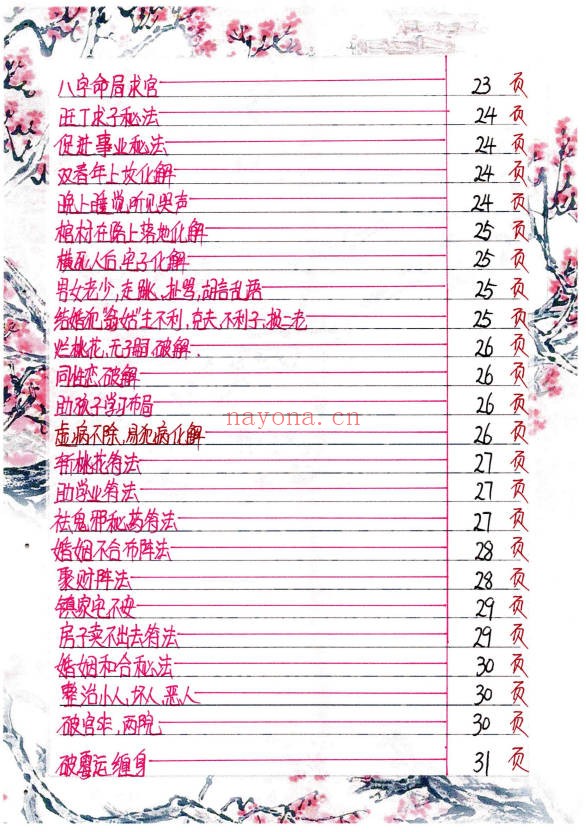 八字命局求官 23 页
旺丁求子秘法 24 页
促进事业秘法 24 页
双青年上坟化解 24 页
晚上睡觉听见哭声 24 页
棺材在路上落地化解 25 页
横死人后,宅子化解 25 页
男女老少,走跳,扯骂,胡言乱语 25 页
结婚犯"翁姑"主不利,克夫,不利子,损二老 25 页
烂桃花,无子嗣,破解. 26 页
同性恋破解 26 页
助孩子学习布局 26 页
nayona.cn
虚病不除,易犯病化解 26 页
斩桃花符法 27 页
助学业符法 27 页
祛鬼邪秘药符法 27 页
婚姻不合布阵法 28 页
聚财阵法 28 页
镇家宅不安 29 页
房子卖不出去符法 29 页
婚姻和合秘法 30 页
整治小人,坏人,恶人 30 页
破官非,两院 30 页
破霉运缠身 31 页